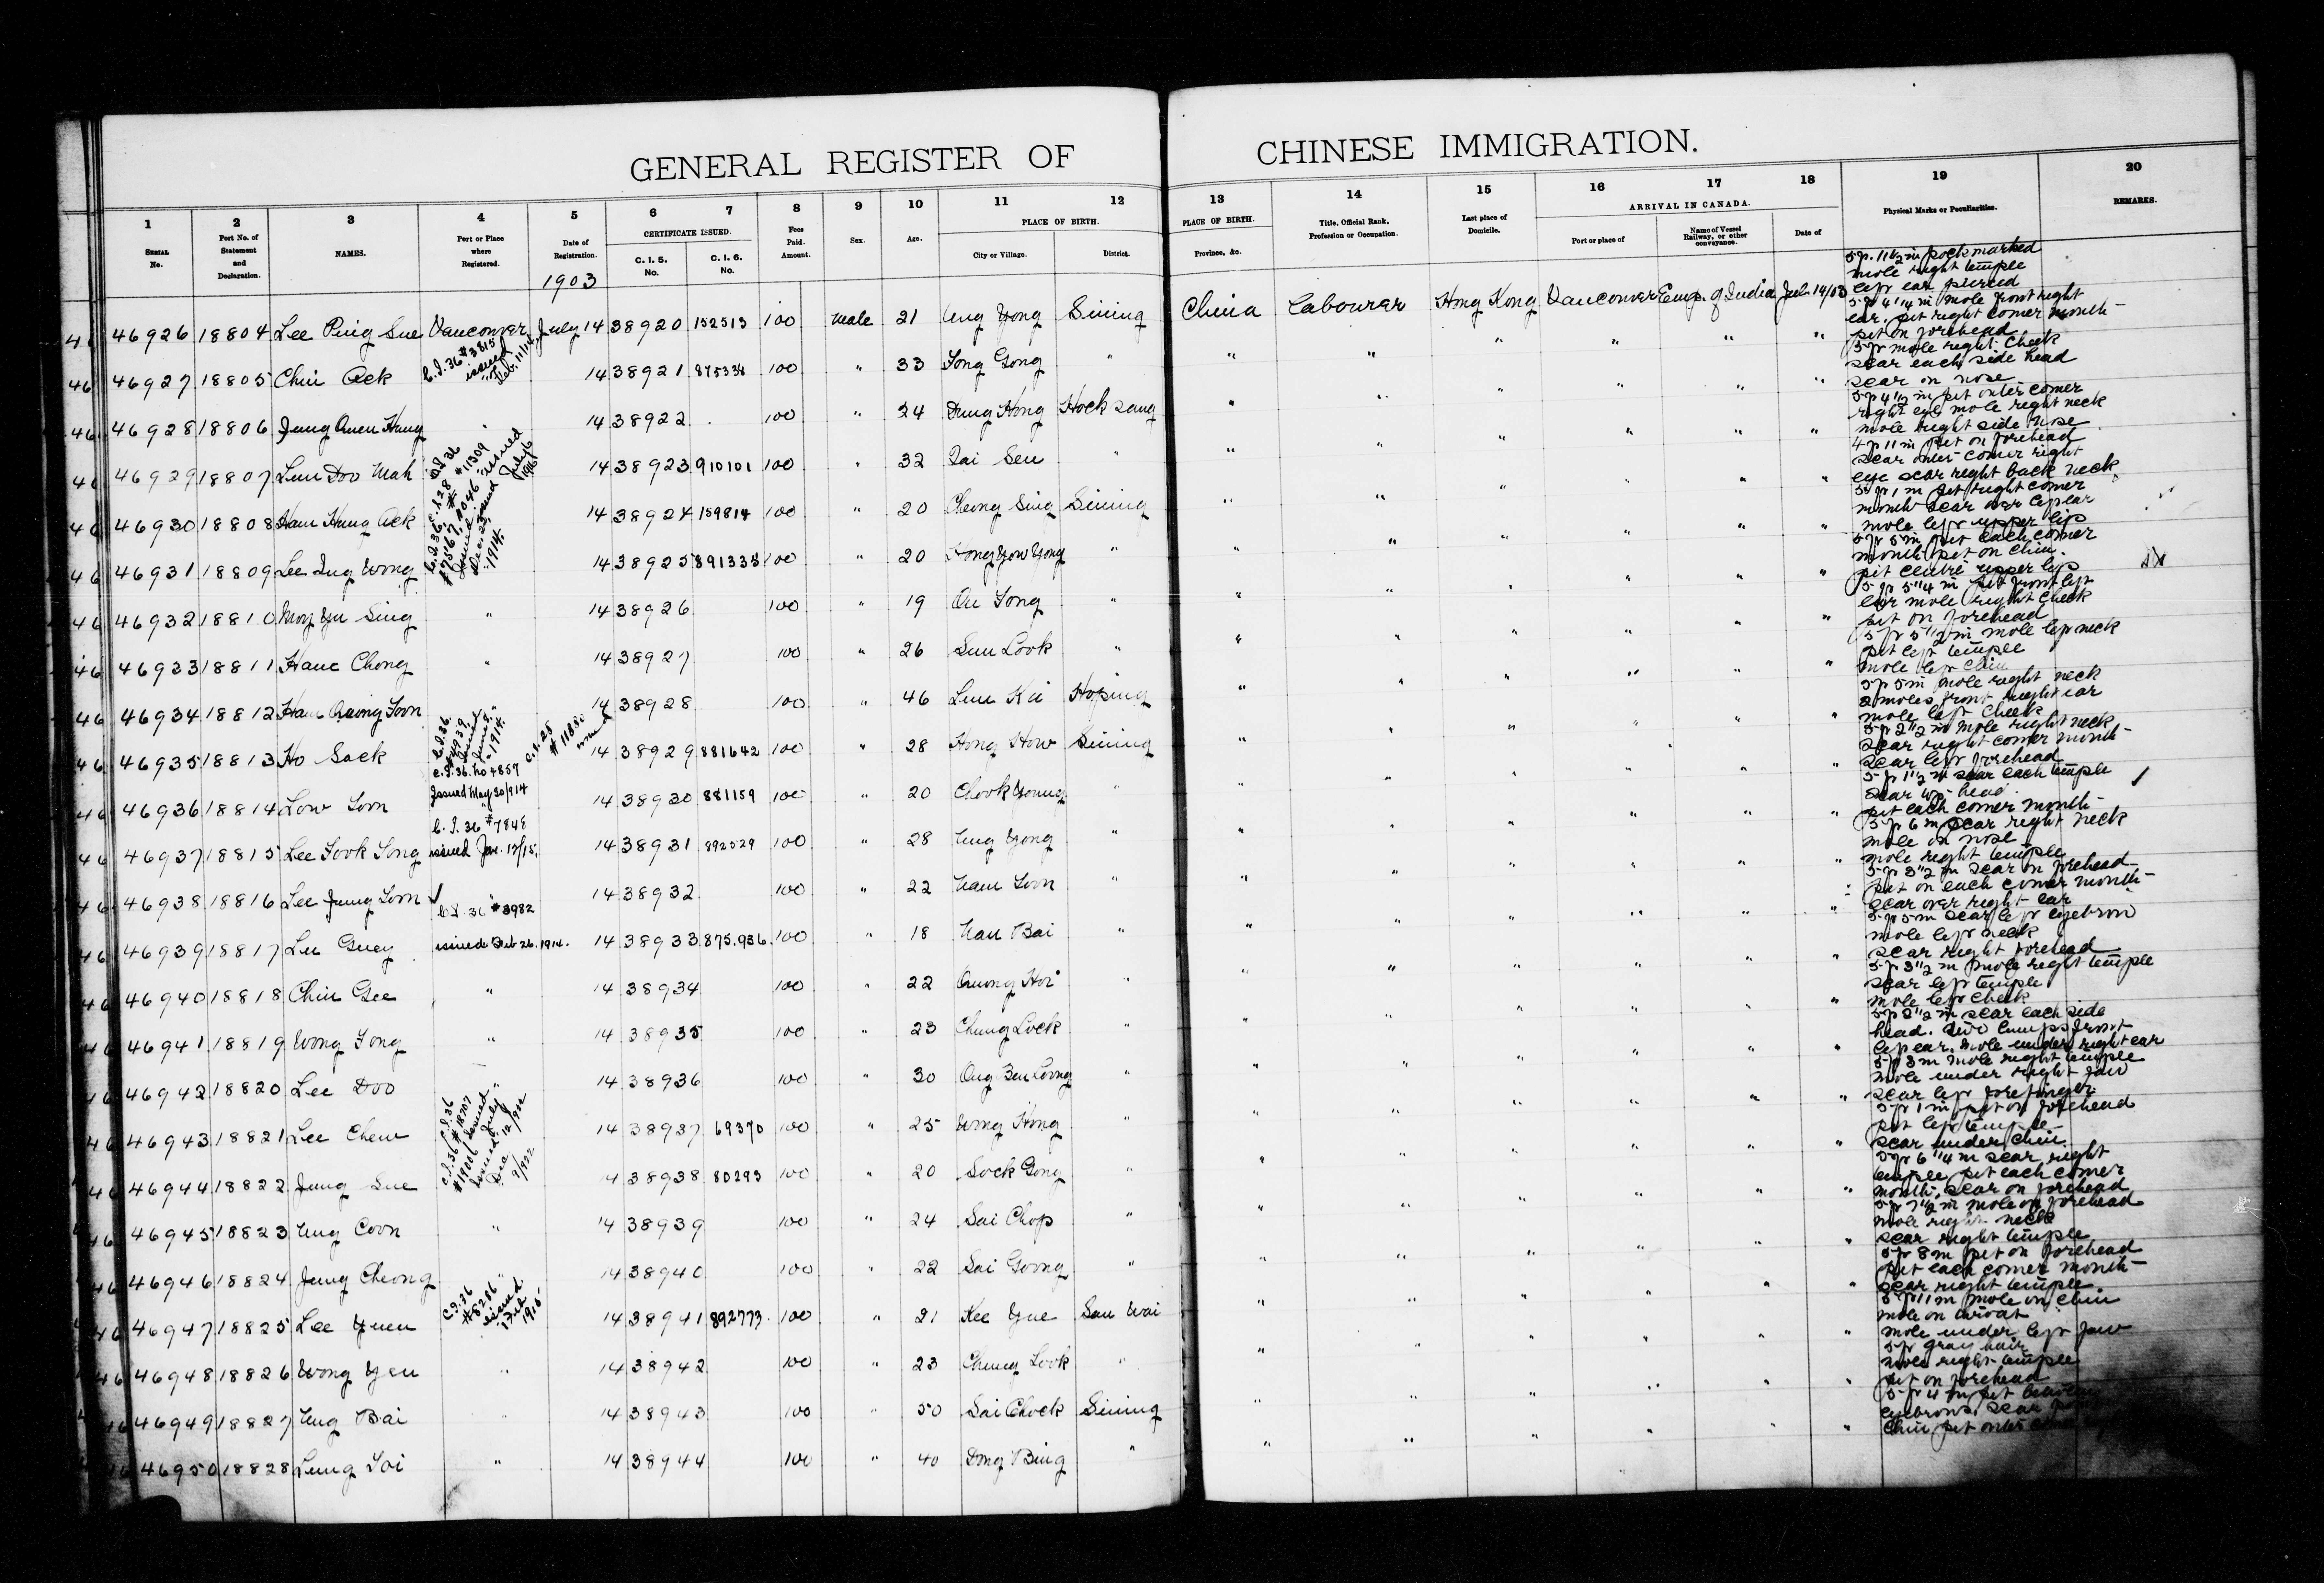 GENERAL REGISTER OF CHINESE IMMIGRATION.
1 2 3 4 5 6 7 8 9 10 11 12 13 14 15 16 17 18 19 20
SERIAL No. Port No. of Statement and Declaration. NAMES. Port or Place where Registered. Date of Registration. CERTIFICATE ISSUED. C. I. 5. No. C. I. 6. No. Fees Paid. Amount. Sex. Age. PLACE OF BIRTH. City or Village. District. PLACE OF BIRTH. Province, &c. Title, Official Rank, Profession or Occupation. Last place of Domicile. ARRIVAL IN CANADA. Port or place of Name of Vessel Railway, or other conveyance. Date of Physical Marks or Peculiarities. REMARKS.
1903
46926 18804 Lee Ping Sue Vancouver July 14 38920 152513 100 Male 21 Ung Yong Sining China Labourer Hong Kong Vancouver Emp. of India Jul. 14/03 5 ft. 11 1/2 in pock marked mole right temple left ear pierced
46927 18805 Chin Ack C.I. 36 #3815 issued Feb. 11/14 14 38921 875338 100 " 33 Tong Gong " " " " " " " 5 ft 4 1/4 in mole front right ear. pit right corner mouth pit on forehead
46928 18806 Jung Quen Hung " 14 38922 100 " 24 Fung Hong Hock San " " " " " " 5 ft mole right cheek scar each side head scar on nose
46929 18807 Lum Doo Mah 14 38923 910101 100 " 32 Sai Sen " " " " " " " 5 ft 4 1/2 in pit outer corner right eye mole right neck mole right side nose
46930 18808 Ham Hung Ack 14 38924 159814 100 " 20 Cheong Sing Sining " " " " " " 4 ft 11 in pit on forehead scar outer corner right eye scar right back neck
46931 18809 Lee Ing Wong 14 38925 891333 100 " 20 Hong Yow Yong " " " " " " " 5 ft 1 in pit right corner mouth scar over left ear mole left upper lip
46932 18810 Moy Yu Sing " 14 38926 100 " 19 On Tong " " " " " " " 5 ft 5 in pit each corner mouth. pit on chin. pit centre upper lip
46933 18811 Ham Chong " 14 38927 100 " 26 Sun Look " " " " " " " 5 ft 5 1/4 in pit front left ear mole right cheek pit on forehead
46934 18812 Ham Quong Toon " 14 38928 100 " 46 Lun Kii Hoping " " " " " " 5 ft 5 1/2 in mole left neck pit left temple mole left chin
46935 18813 Ho Sack 14 38929 881642 100 " 28 Hong How Sining " " " " " " 5 ft 5 in mole right neck 2 moles front right ear mole left cheek
46936 18814 Low Toon C.I. 36. No 4857 Issued May 30/914 14 38930 881159 100 " 20 Chook Young " " " " " " " 5 ft 2 1/2 in mole right neck scar right corner mouth scar left forehead
46937 18815 Lee Took Tong C. I. 36 #7848 issued Jan. 12/15. 14 38931 892529 100 " 28 Ung Yong " " " " " " " 5 ft 1 1/2 in scar each temple scar top head. pit each corner mouth
46938 18816 Lee Jung Toon " 14 38932 100 " 22 Nam Toon " " " " " " " 5 ft 6 in scar right neck mole on nose mole right temple
46939 18817 Lee Guey C.I. 36 #3982 issued Feb 26. 1914. 14 38933 875,936 100 " 18 Nan Bai " " " " " " " 5 ft 3 1/2 in scar on forehead pit on each corner mouth scar over right ear
46940 18818 Chin Gee " 14 38934 100 " 22 Quong Hoi " " " " " " " 5 ft 5 in scar left eyebrow mole left neck scar right forehead
46941 18819 Wong Fong " 14 38935 100 " 23 Chung Lock " " " " " " " 5 ft 3 1/2 in mole right temple scar left temple mole left cheek
46942 18820 Lee Doo " 14 38936 100 " 30 Ong Ben Loong " " " " " " " 5 ft 2 1/2 in scar each side head. Two lumps front left ear. mole under right ear
46943 18821 Lee Chew 14 38937 69370 100 " 25 Wong Hong " " " " " " " 5 ft 3 in mole right temple mole under right jaw scar left forefinger
46944 18822 Jung Sue 14 38938 80293 100 " 20 Sock Gong " " " " " " " 5 ft 1 in pit on forehead pit left temple scar under chin.
46945 18823 Ung Coon " 14 38939 100 " 24 Sai Chop " " " " " " " 5 ft 6 1/4 in scar right temple pit each corner mouth. scar on forehead
46946 18824 Jung Cheong " 14 38940 100 " 22 Sai Goong " " " " " " " 5 ft 7 1/2 in mole on forehead mole right neck scar right temple
46947 18825 Lee Yuen C.I. 36 #8286 issued 17 Feb 1915 14 38941 892773 100 " 21 Kee Yue San Wai " " " " " " 5 ft 8 in pit on forehead pit each corner mouth scar right temple
46948 18826 Wong Yen " 14 38942 100 " 23 Chung Look " " " " " " " 5 ft 11 in mole on chin mole on throat mole under left jaw
46949 18827 Ung Bai " 14 38943 100 " 50 Sai Chock Sining " " " " " " 5 ft gray hair mole right temple pit on forehead
46950 18828 Leung Loi " 14 38944 100 " 40 Dong Bing " " " " " " " 5 ft 4 in pit between eyebrows. scar chin pit outer